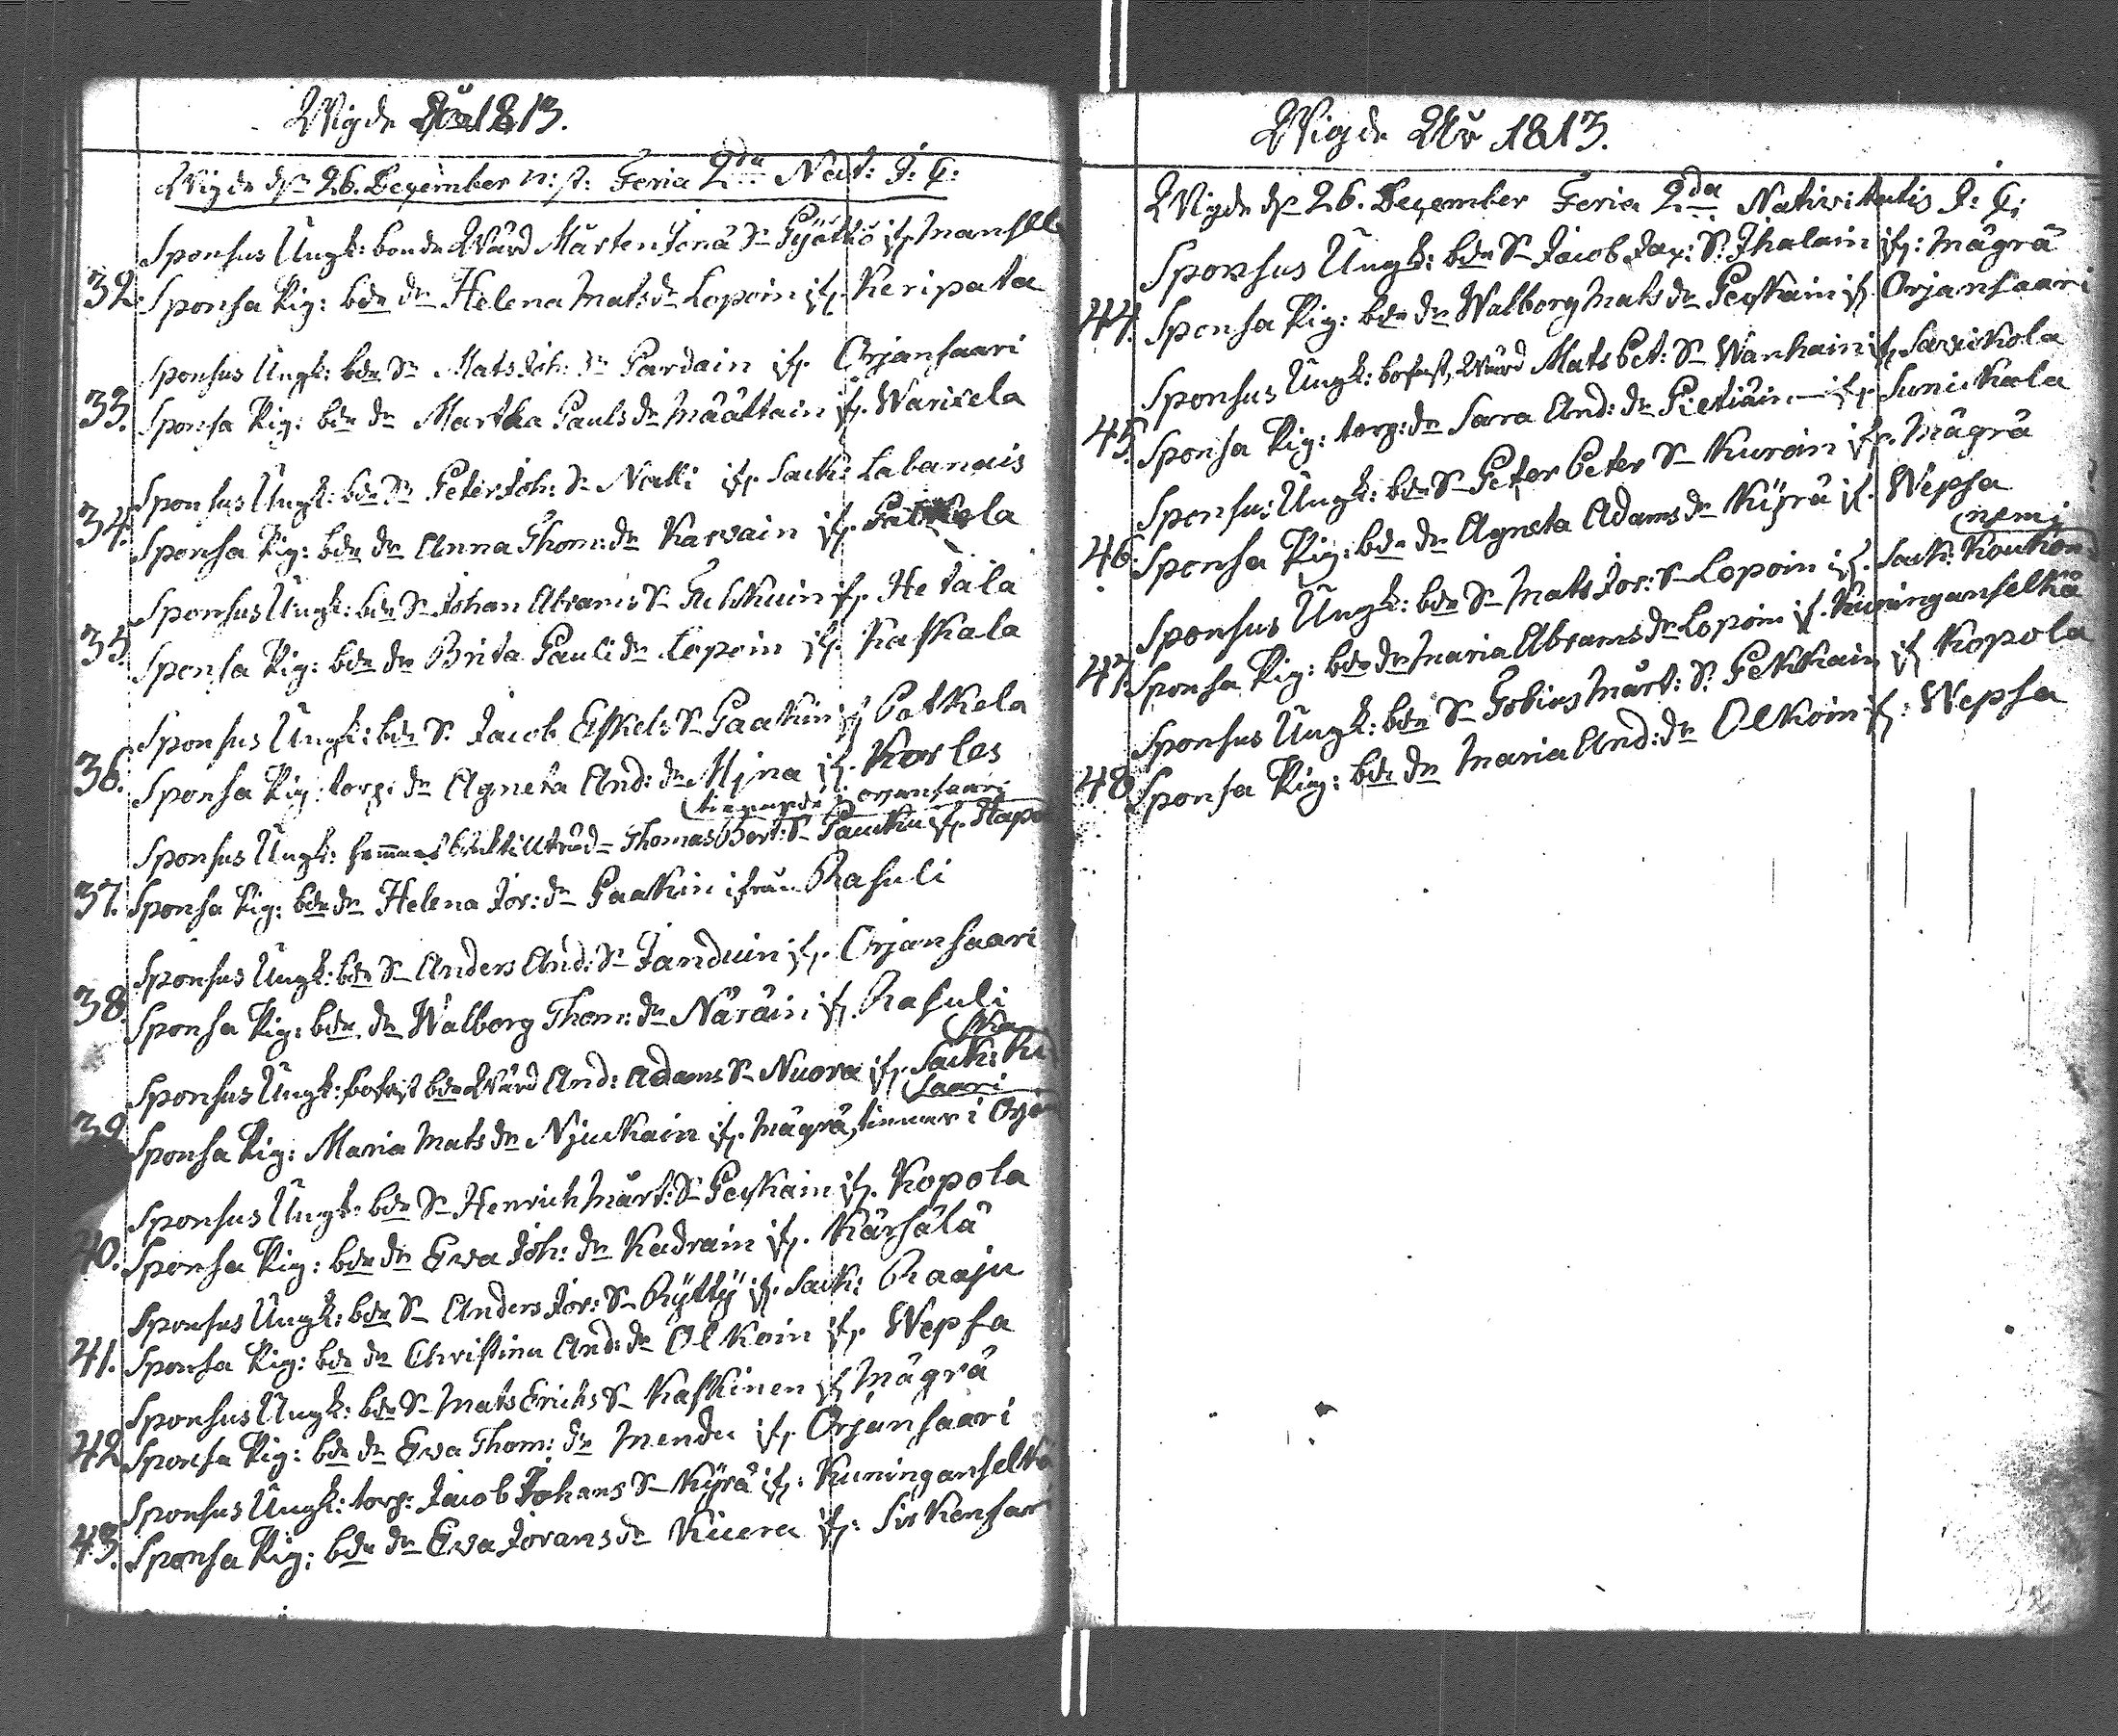 Wigde År 1813.
Wigde d: 26. December n: st: Feria 2da Nat: J: C:
Sponsus Ungk: bonde Wård Mårten Jonæ Sn Pyöttiö ifr. Mansel
32. Sponsa Pig: bde dr Helena Mats dr Lopoin ifr. Keripata
Sponsus Ungk: bde Sn Mats Joh: Sn Pardain ifr. Orjansaari
33. Sponsa Pig: bde dr Martha Pauls dr Määttäin ifr. Warixela
Sponsus Ungk: bde Sn Peter Joh: Sn Natti ifr. Sack: Labanais
34. Sponsa Pig: bde dr Anna Thom: dr Karvain ifr. Patkela
Sponsus Ungk: bde Sn Johan Abrams Sn ifr. Hetala
35. Sponsa Pig: bde dr Brita Pauli dr Lopoin ifr. Kaskala
Sponsus Ungk: bde Sn Jacob Eskels Sn Paakun ifr Patkela
36. Sponsa Pig: torp: dr Agneta And: dr Myna ifr. Korles
orjansaari
Sponsus Ungk: Thomas Bert: Sn Paucku ifr. Hapa
37. Sponsa Pig: bde dr Helena Jör: dr Paakun ifrån Rasuli
Sponsus Ungk: bde Sn Anders And: Sn Janduin ifr. Orjansaari
38. Sponsa Pig: bde dr Walborg Thom: dr Näräin ifr. Rasuli
Sponsus Ungk: bofast bde Wård And: Adams Sn Nuora ifr. Sack: Ki
ska
39. Sponsa Pig: Maria Mats dr Njuckain ifr. Mägrä, tienar i Orjan
saari
Sponsus Ungk: bde Sn Henrich Mårt: Sn Peskain ifr. Kopola
40. Sponsa Pig: bde dr Ewa Joh: dr Kadrain ifr. Kärsälä
Sponsus Ungk: bde Sn Anders Jör: Sn Rytty ifr. Sack: Raaju
41. Sponsa Pig: bde dr Christina And: dr Olkoin ifr. Wepsa
Sponsus Ungk: bde Sn Mats Erichs Sn Kaskinen ifr Mägrä
42. Sponsa Pig: bde dr Ewa Thom: dr Mendu ifr. Orjansaari
Sponsus Ungk: torp: Jacob Johans Sn Kyrä ifr: Kuninganselkä
43. Sponsa Pig: bde dr Ewa Jörans dr Kuera ifr: Sirkensar
Wigde År 1813.
Wigde d: 26. December Feria 2da Nativitatis J: C:
Sponsus Ungk: bde Sn Jacob Jac: Sn Ihalain ifr: Mägrä
44. Sponsa Pig: bde dr Walborg Mats dr Peskain ifr. Orjansaari
Sponsus Ungk: bofast, Wård Mats Pet: Sn Wanhain ifr. Savickola
45. Sponsa Pig: torp: dr Sara And: dr Pietiäin ifr. Sunickala
Sponsus Ungk: bde Sn Peter Peter Sn Kuroin ifr. Mägrä
46. Sponsa Pig: bde dr Agneta Adams dr Kyrä ifr. Wepsa
Sponsus Ungk: bde Sn Mats Jör: Sn Lopoin ifr. Sack: Koukon
nemi
47. Sponsa Pig: bde dr Maria Abrams dr Lopoin ifr. Kuninganselkä
Sponsus Ungk: bde Sn Tobias Mårt: Sn Pekkain ifr Kopola
48. Sponsa Pig: bde dr Maria And: dr Olkoin ifr: Wepsa